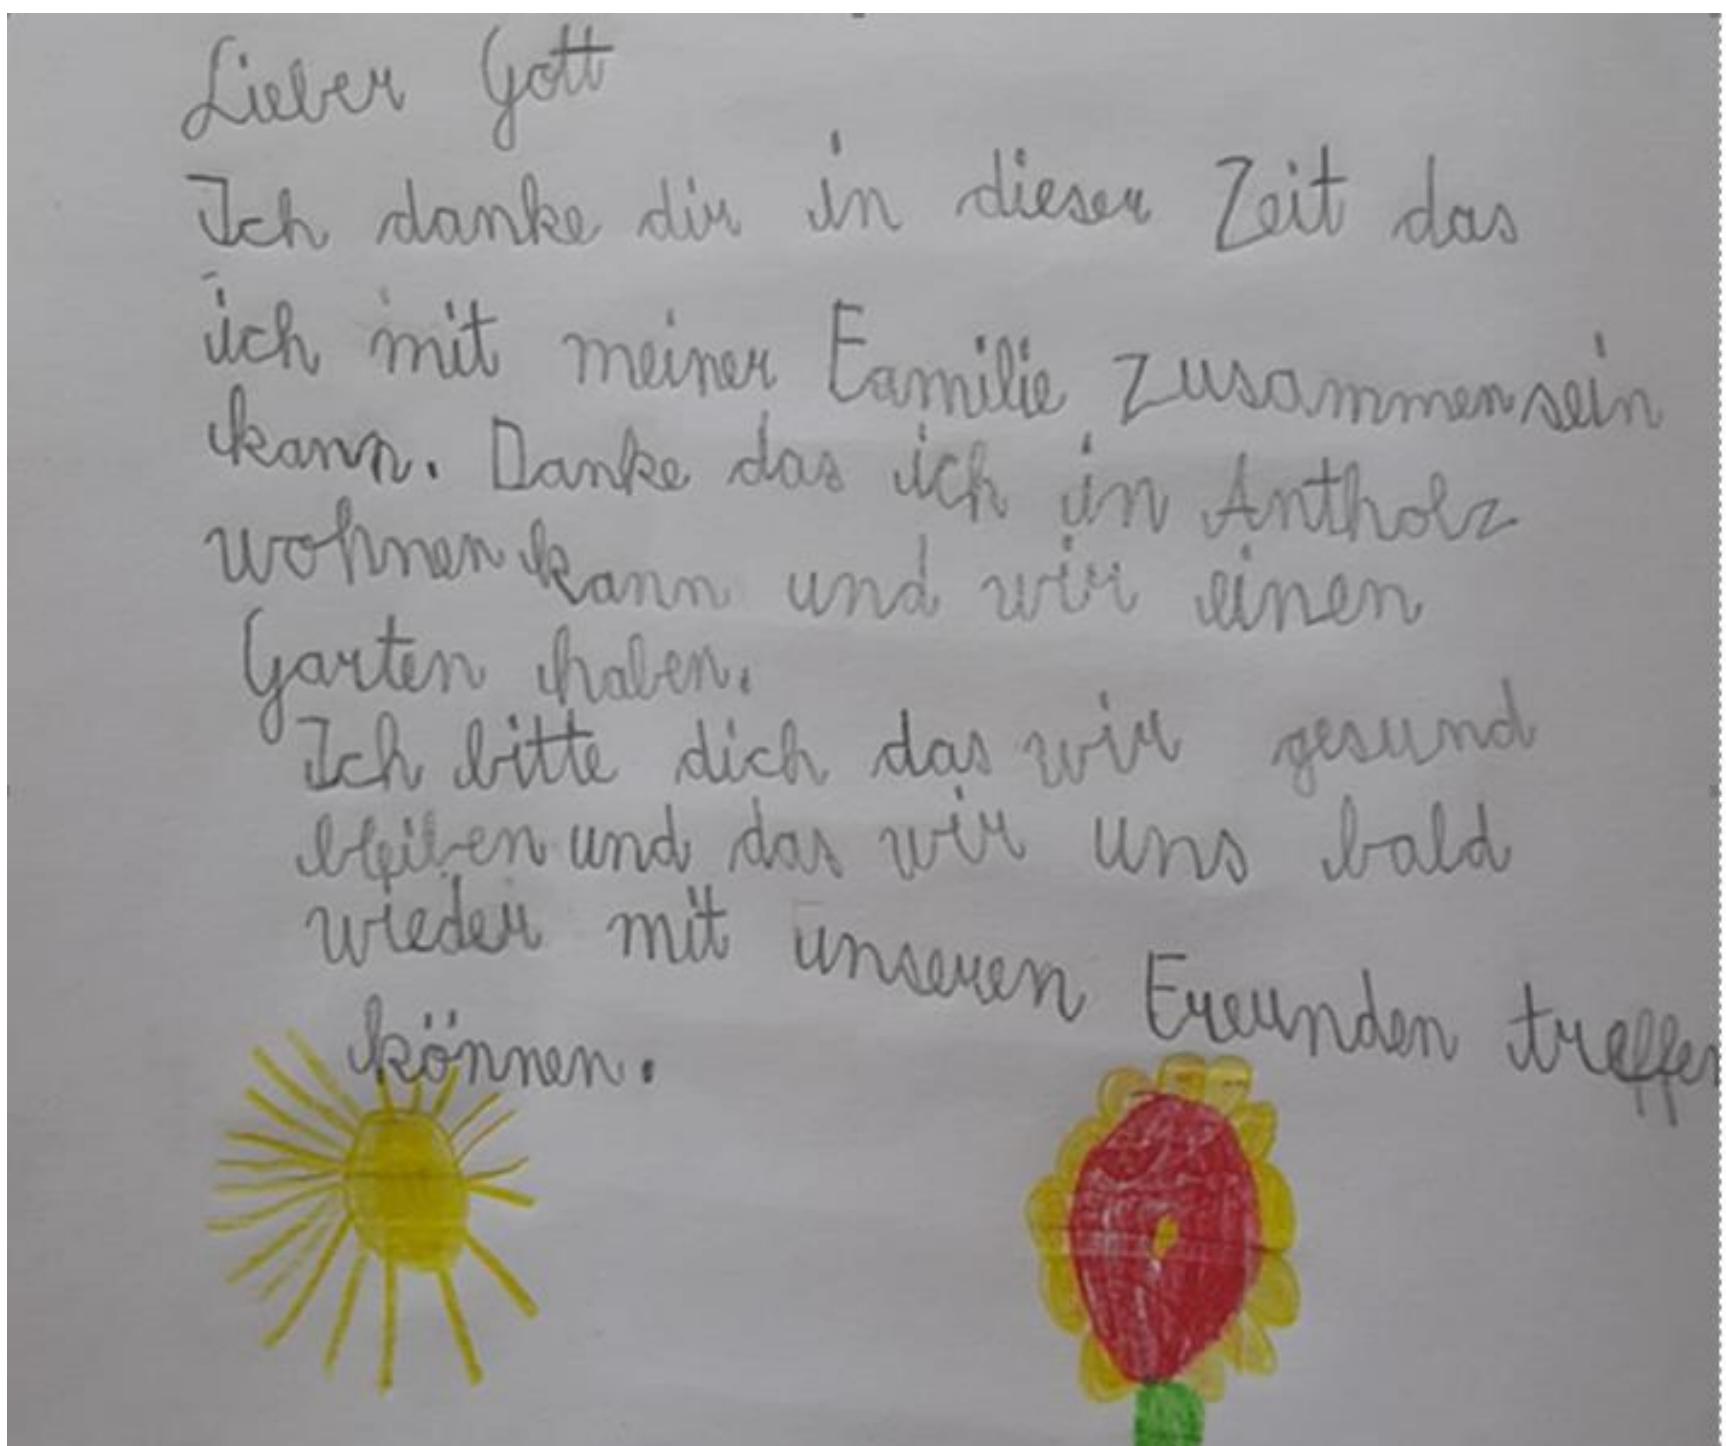 Lieber Gott
Ich danke dir in dieser Zeit das
ich mit meiner Familie zusammensein
kann. Danke das ich in Antholz
wohnen kann und wir einen
Garten haben.
Ich bitte dich das wir gesund
bleiben und das wir uns bald
wieder mit unseren Freunden treffen
können.